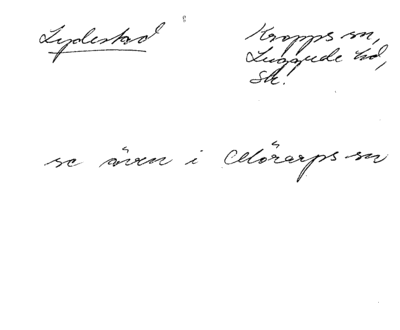 Lydestad
Kropps sn,
Luggude hd,
Sk.
se även i Mörarps sn